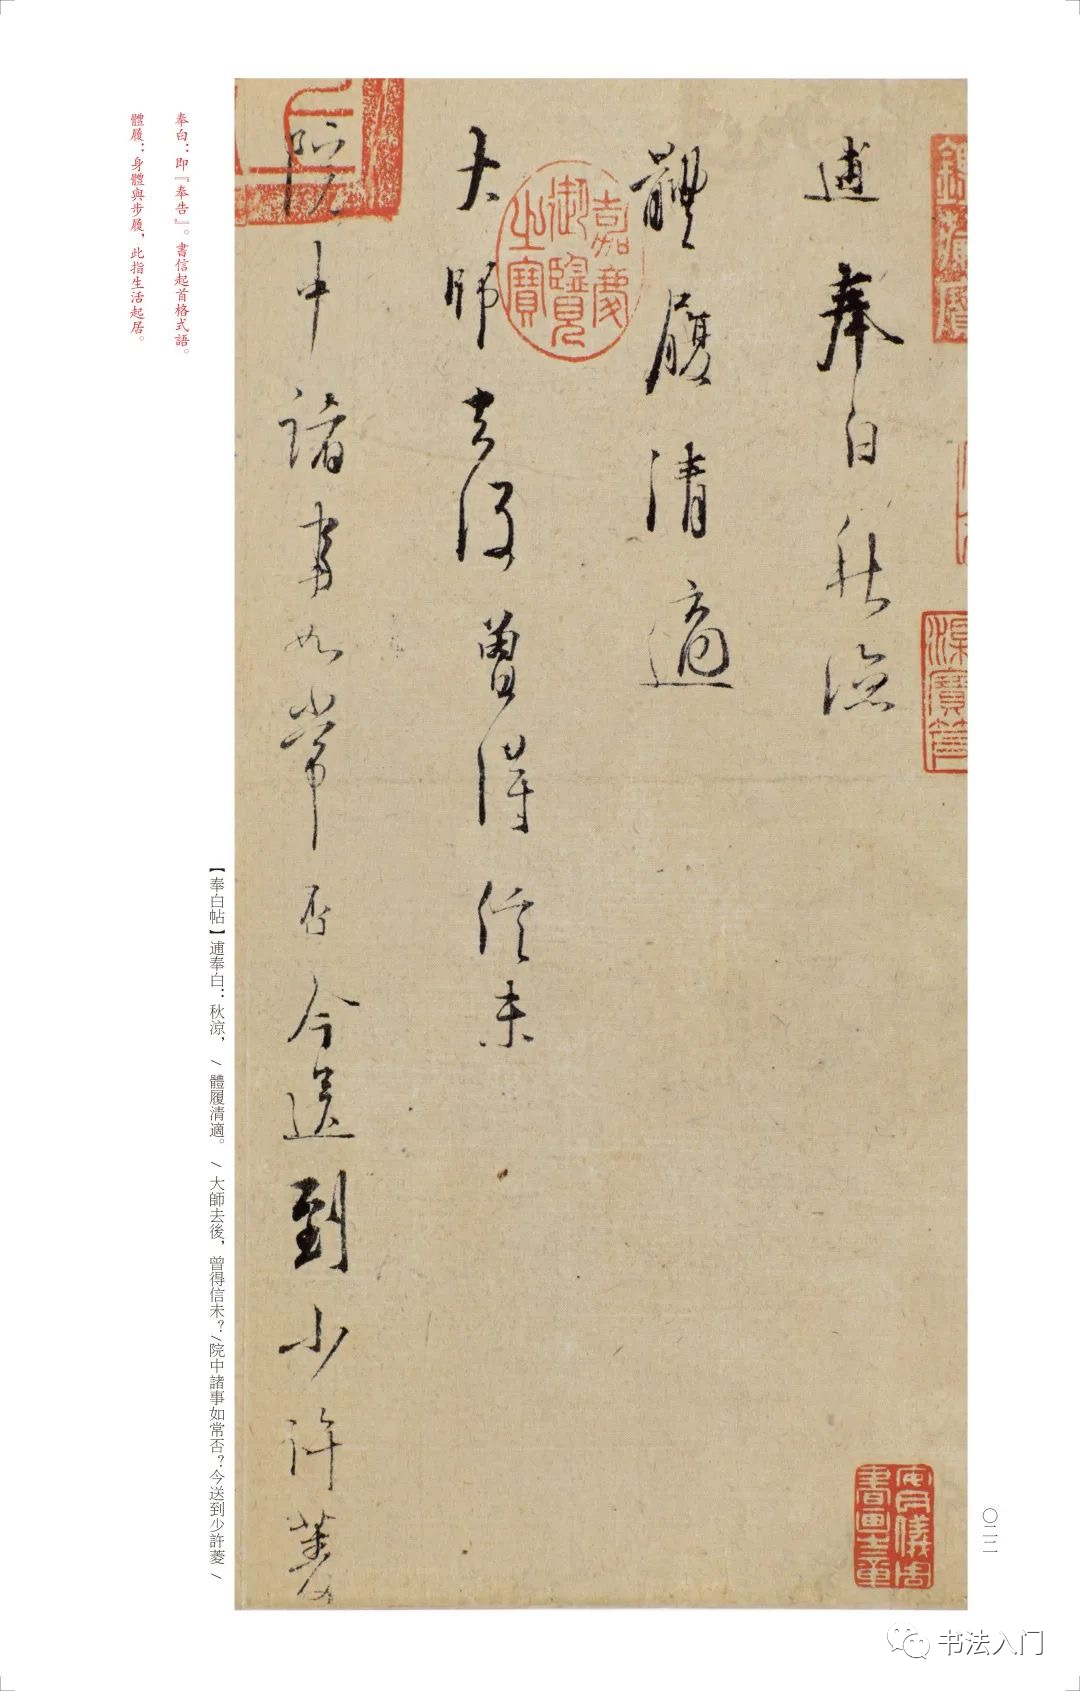 〇二二
逋奉白秋涼
體履清適
大師去後曾得信未
院中諸事如常否今送到少許菱
嘉慶
御覽
之寶
安儀周
書畫之章
【奉白帖】逋奉白：秋涼，/體履清適。/大師去後，曾得信未？/院中諸事如常否？今送到少許菱/
奉白：即『奉告』。書信起首格式語。
體履：身體與步履，此指生活起居。
书法入门